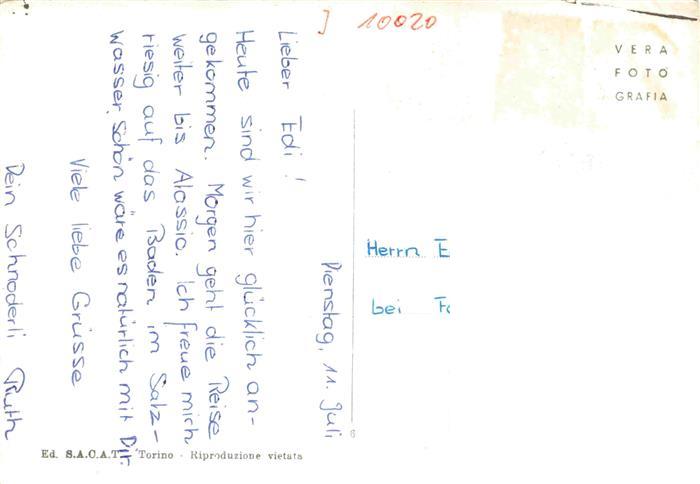 ] 10020
VERA
FOTO
GRAFIA
Dienstag, 11. Juli
Lieber Edi!
Heute sind wir hier glücklich an-
gekommen. Morgen geht die Reise
weiter bis Alassio. Ich freue mich
riesig auf das Baden im Salz-
wasser. Schön wäre es natürlich mit Dir.
Viele liebe Grüsse
Dein Schnoderli Ruth
Herrn E
bei Fa
6
Ed. S.A.C.A.T. Torino - Riproduzione vietata